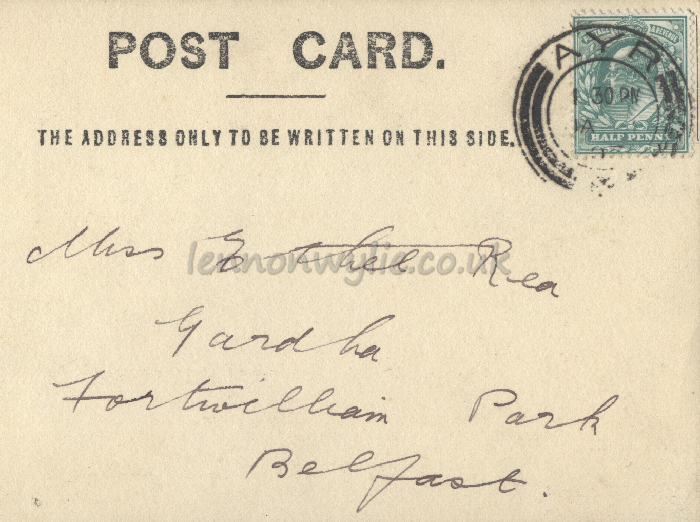 POST CARD.
THE ADDRESS ONLY TO BE WRITTEN ON THIS SIDE.
AYR
1 30 PM
HALF PENNY
Miss Ethel Rea
lennonwylie.co.uk
Gardha
Fortwilliam Park
Belfast.